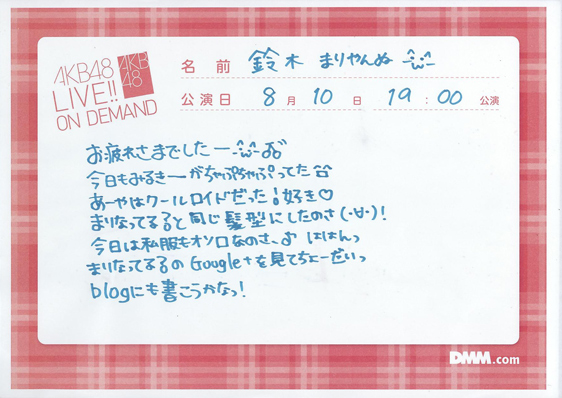 AKB48
LIVE!!
ON DEMAND
AKB
48
名前 鈴木 まりやんぬ
公演日 8月10日 19:00 公演
お疲れさまでしたー
今日もみるきーがちゃぷちゃぷってた
あーやはクールロイドだった!好き♡
まりなってるると同じ髪型にしたのさ(･∀･)!
今日は私服もオソロなのさ、♪ ははんっ
まりなってるるのGoogle+を見てちょーだいっ
blogにも書こうかなっ!
DMM.com